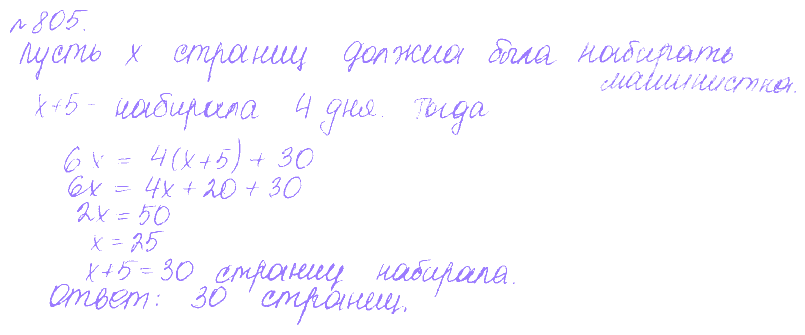 № 805.
Пусть x страниц должна была набирать
машинистка.
x+5 - набирала 4 дня. Тогда
6x = 4(x+5) + 30
6x = 4x + 20 + 30
2x = 50
x = 25
x+5 = 30 страниц набирала.
Ответ: 30 страниц.